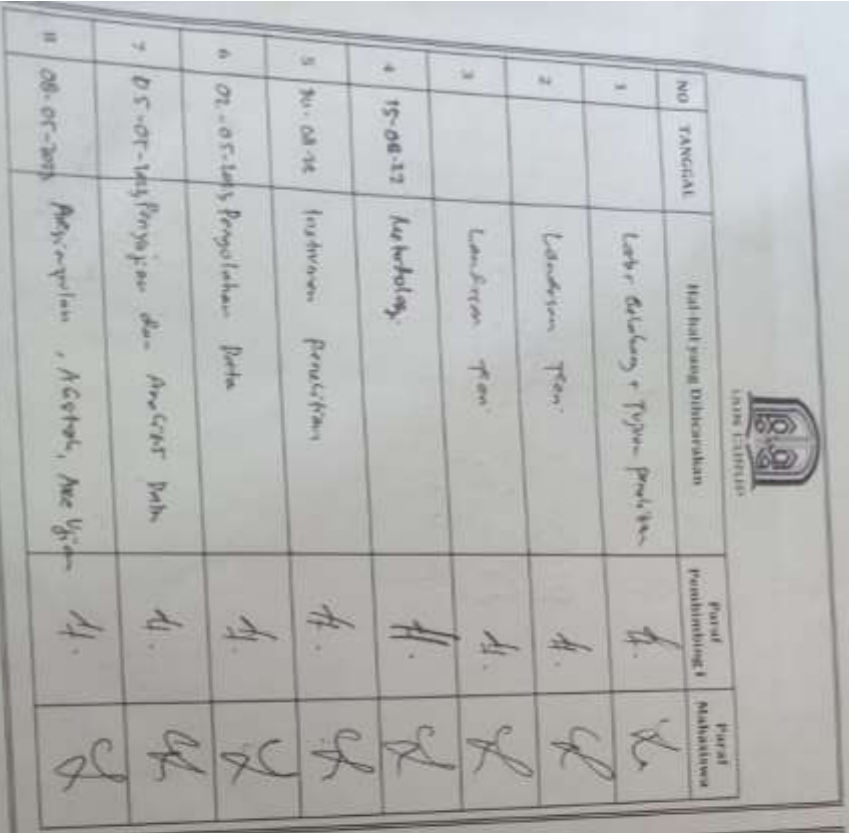 IAIN CURUP
NO TANGGAL Hal-hal yang Dibicarakan Paraf Pembimbing I Paraf Mahasiswa
1 Latar Belakang + Tujuan penelitian
2 Landasan Teori
3 Landasan Teori
4 15-08-22 Metodologi
5 Instrumen Penelitian
6 02-05-2023 Pengolahan Data
7 05-05-2023 Penyajian dan Analisis Data
8 08-05-2023 , Abstrak, Acc Ujian